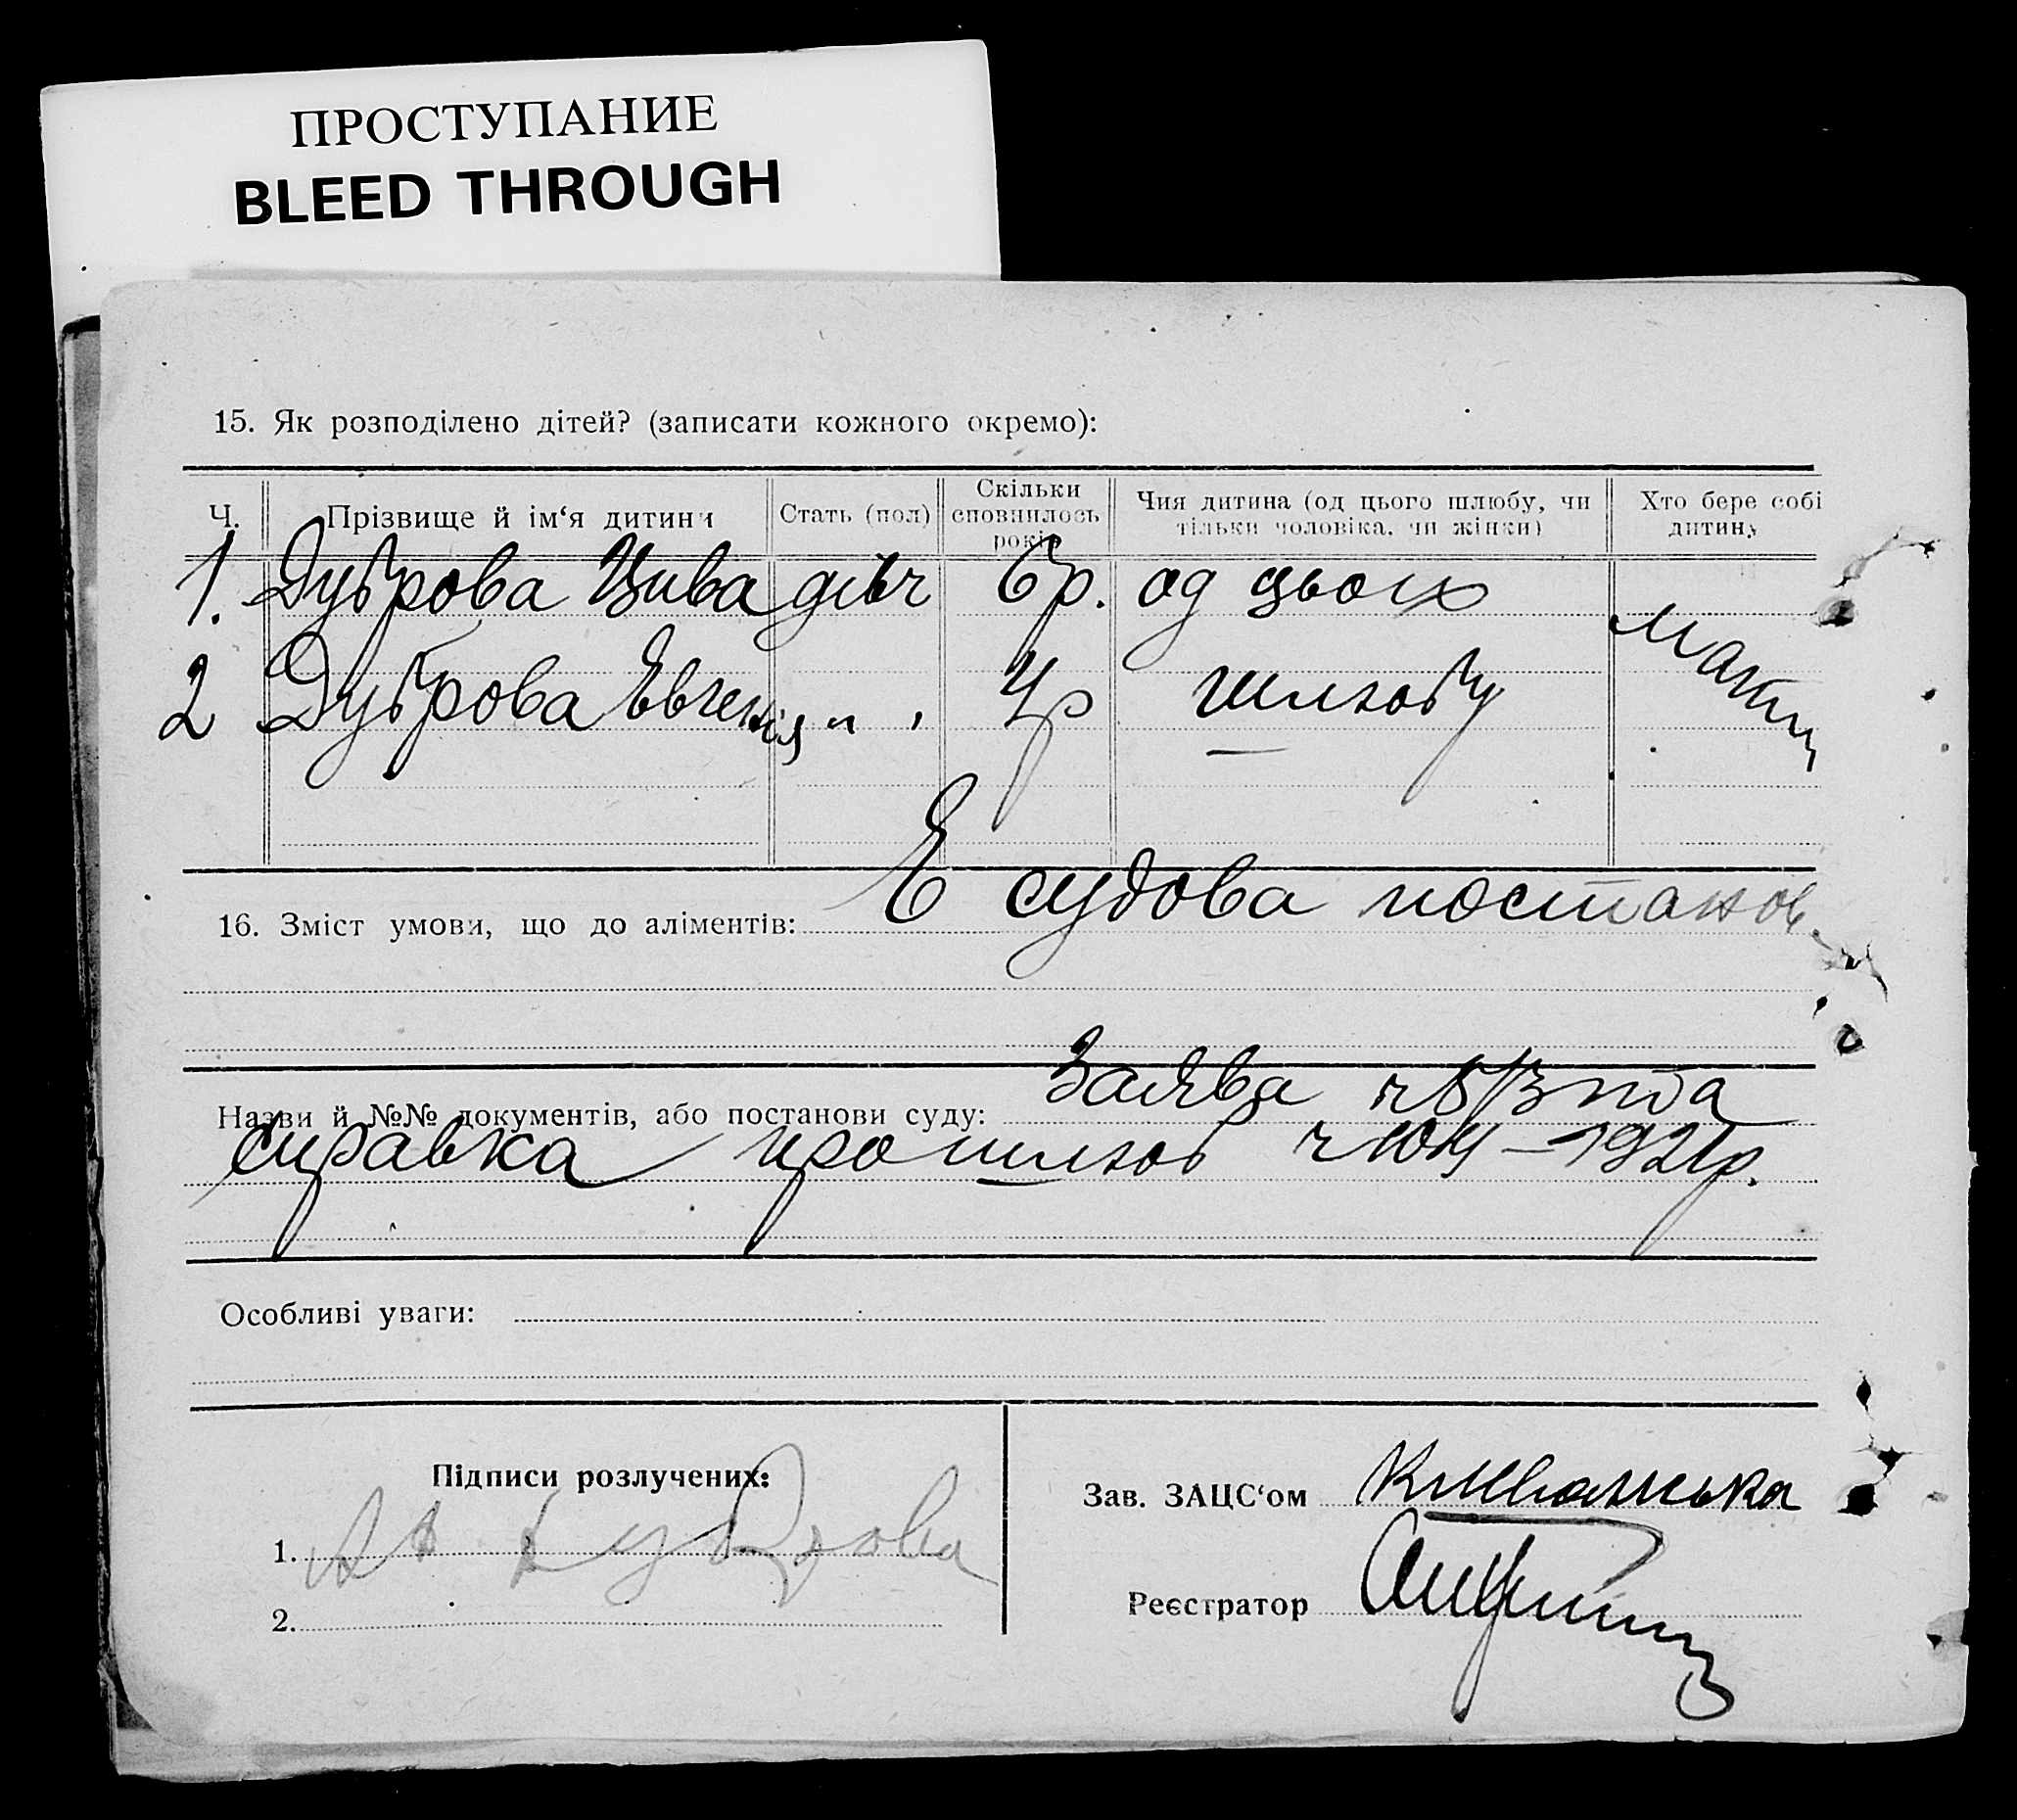 ПРОСТУПАНИЕ
BLEED THROUGH
15. Як розподілено дітей? (записати кожного окремо):
Ч. Прізвище й ім‘я дитини Стать (пол) Скільки сповнилось років Чия дитина (од цього шлюбу, чи тільки чоловіка, чи жінки) Хто бере собі дитину
1. Дуброва Цива дівч 6р. од цього
2 Дуброва Евгенія " " 4р шлюбу мати
16. Зміст умови, що до аліментів: Е судова постанов.
Назви й №№ документів, або постанови суду: Заява та
справка про шлюб 1921р.
Особливі уваги:
Підписи розлучених:
Зав. ЗАЦС‘ом
1. Дуброва
Реєстратор
2.